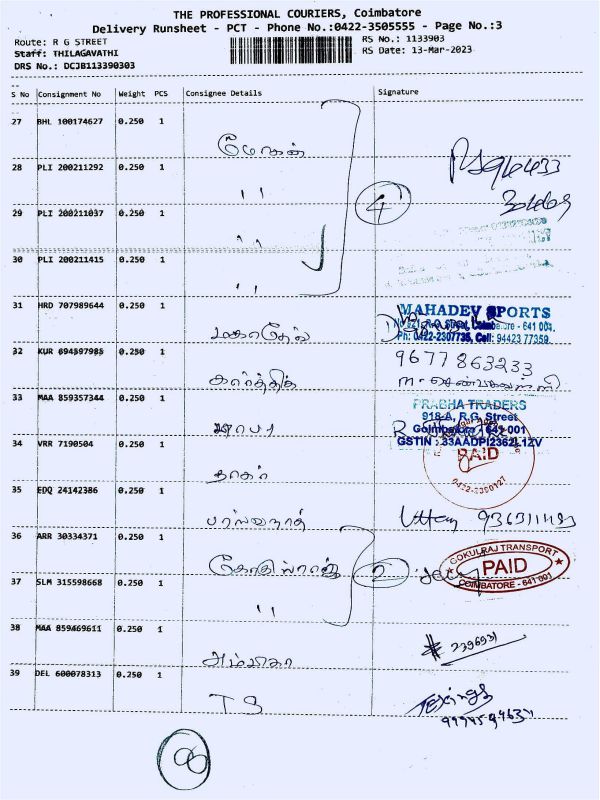 THE PROFESSIONAL COURIERS, Coimbatore
Delivery Runsheet - PCT - Phone No.:0422-3505555 - Page No.:3
Route: R G STREET
RS No.: 1133903
Staff: THILAGAVATHI
RS Date: 13-Mar-2023
DRS No.: DCJB113390303
S No Consignment No Weight PCS Consignee Details Signature
27 BHL 100174627 0.250 1
மோகன்
28 PLI 200211292 0.250 1
" 4
29 PLI 200211037 0.250 1
"
30 PLI 200211415 0.250 1
"
31 HRD 707989644 0.250 1
மகாதேவ்
MAHADEV SPORTS
R.G. Street, Coimbatore - 641 001.
Ph: 0422-2307735, Cell: 94423 77359
32 KUR 694597985 0.250 1
கார்த்திக்
9677863233
33 MAA 859357344 0.250 1
பிரபா
PRABHA TRADERS
918-A, R.G. Street
Coimbatore - 641 001
GSTIN : 33AADPI2362L1ZV
34 VRR 7190504 0.250 1
PAID
0422-2390127
35 EDQ 24142386 0.250 1
36 ARR 30334371 0.250 1
கோகுல்ராஜ் 2
GOKULRAJ TRANSPORT
PAID
COIMBATORE - 641 001
37 SLM 315598668 0.250 1
"
38 MAA 859469611 0.250 1
அம்பிகா
2396931
39 DEL 600078313 0.250 1
TS